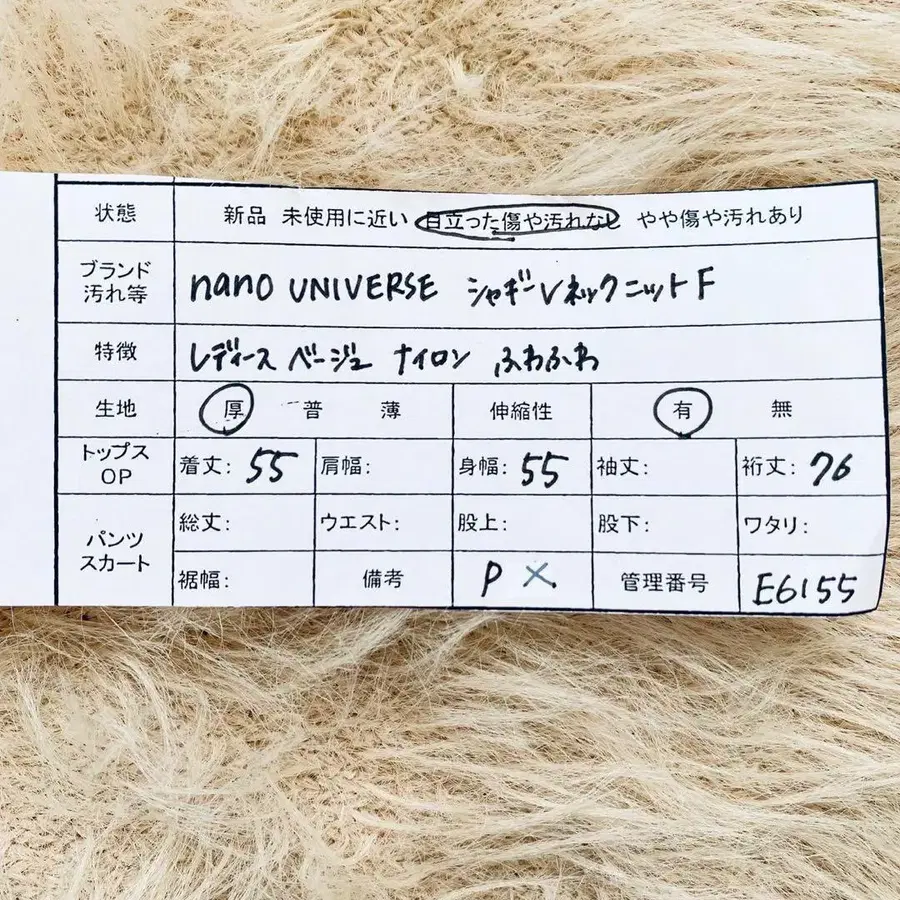 状態 新品 未使用に近い 目立った傷や汚れなし やや傷や汚れあり
ブランド
汚れ等 nano UNIVERSE シャギーVネックニットF
特徴 レディース ベージュ ナイロン ふわふわ
生地 厚 普 薄 伸縮性 有 無
トップス
OP 着丈: 55 肩幅: 身幅: 55 袖丈: 裄丈: 76
パンツ
スカート 総丈: ウエスト: 股上: 股下: ワタリ:
裾幅: 備考 P × 管理番号 E6155